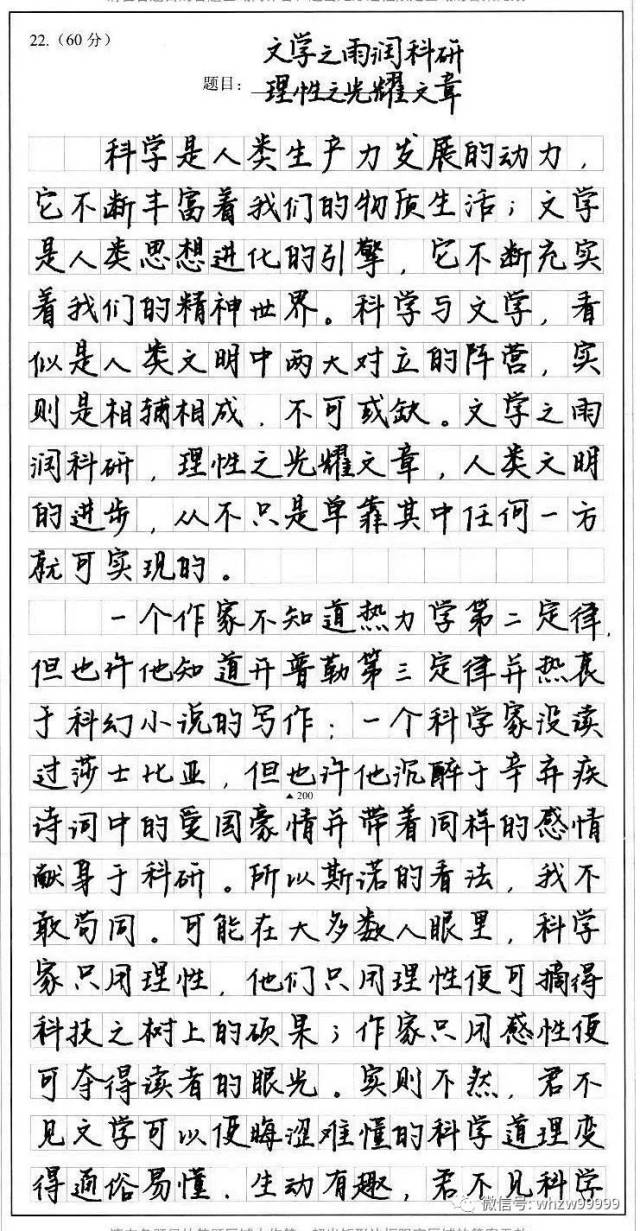 22.(60分)
文学之雨润科研
题目:
理性之光耀文章
科学是人类生产力发展的动力,
它不断丰富着我们的物质生活;文学
是人类思想进化的引擎,它不断充实
着我们的精神世界。科学与文学,看
似是人类文明中两大对立的阵营,实
则是相辅相成,不可或缺。文学之雨
润科研,理性之光耀文章,人类文明
的进步,从不只是单靠其中任何一方
就可实现的。
一个作家不知道热力学第二定律,
但也许他知道开普勒第三定律并热衷
于科幻小说的写作;一个科学家没读
过莎士比亚,但也许他沉醉于辛弃疾
▲200
诗词中的爱国豪情并带着同样的感情
献身于科研。所以斯诺的看法,我不
敢苟同。可能在大多数人眼里,科学
家只用理性,他们只用理性便可摘得
科技之树上的硕果;作家只用感性便
可夺得读者的眼光。实则不然,君不
见文学可以使晦涩难懂的科学道理变
得通俗易懂、生动有趣,君不见科学
微信号: whzw99999